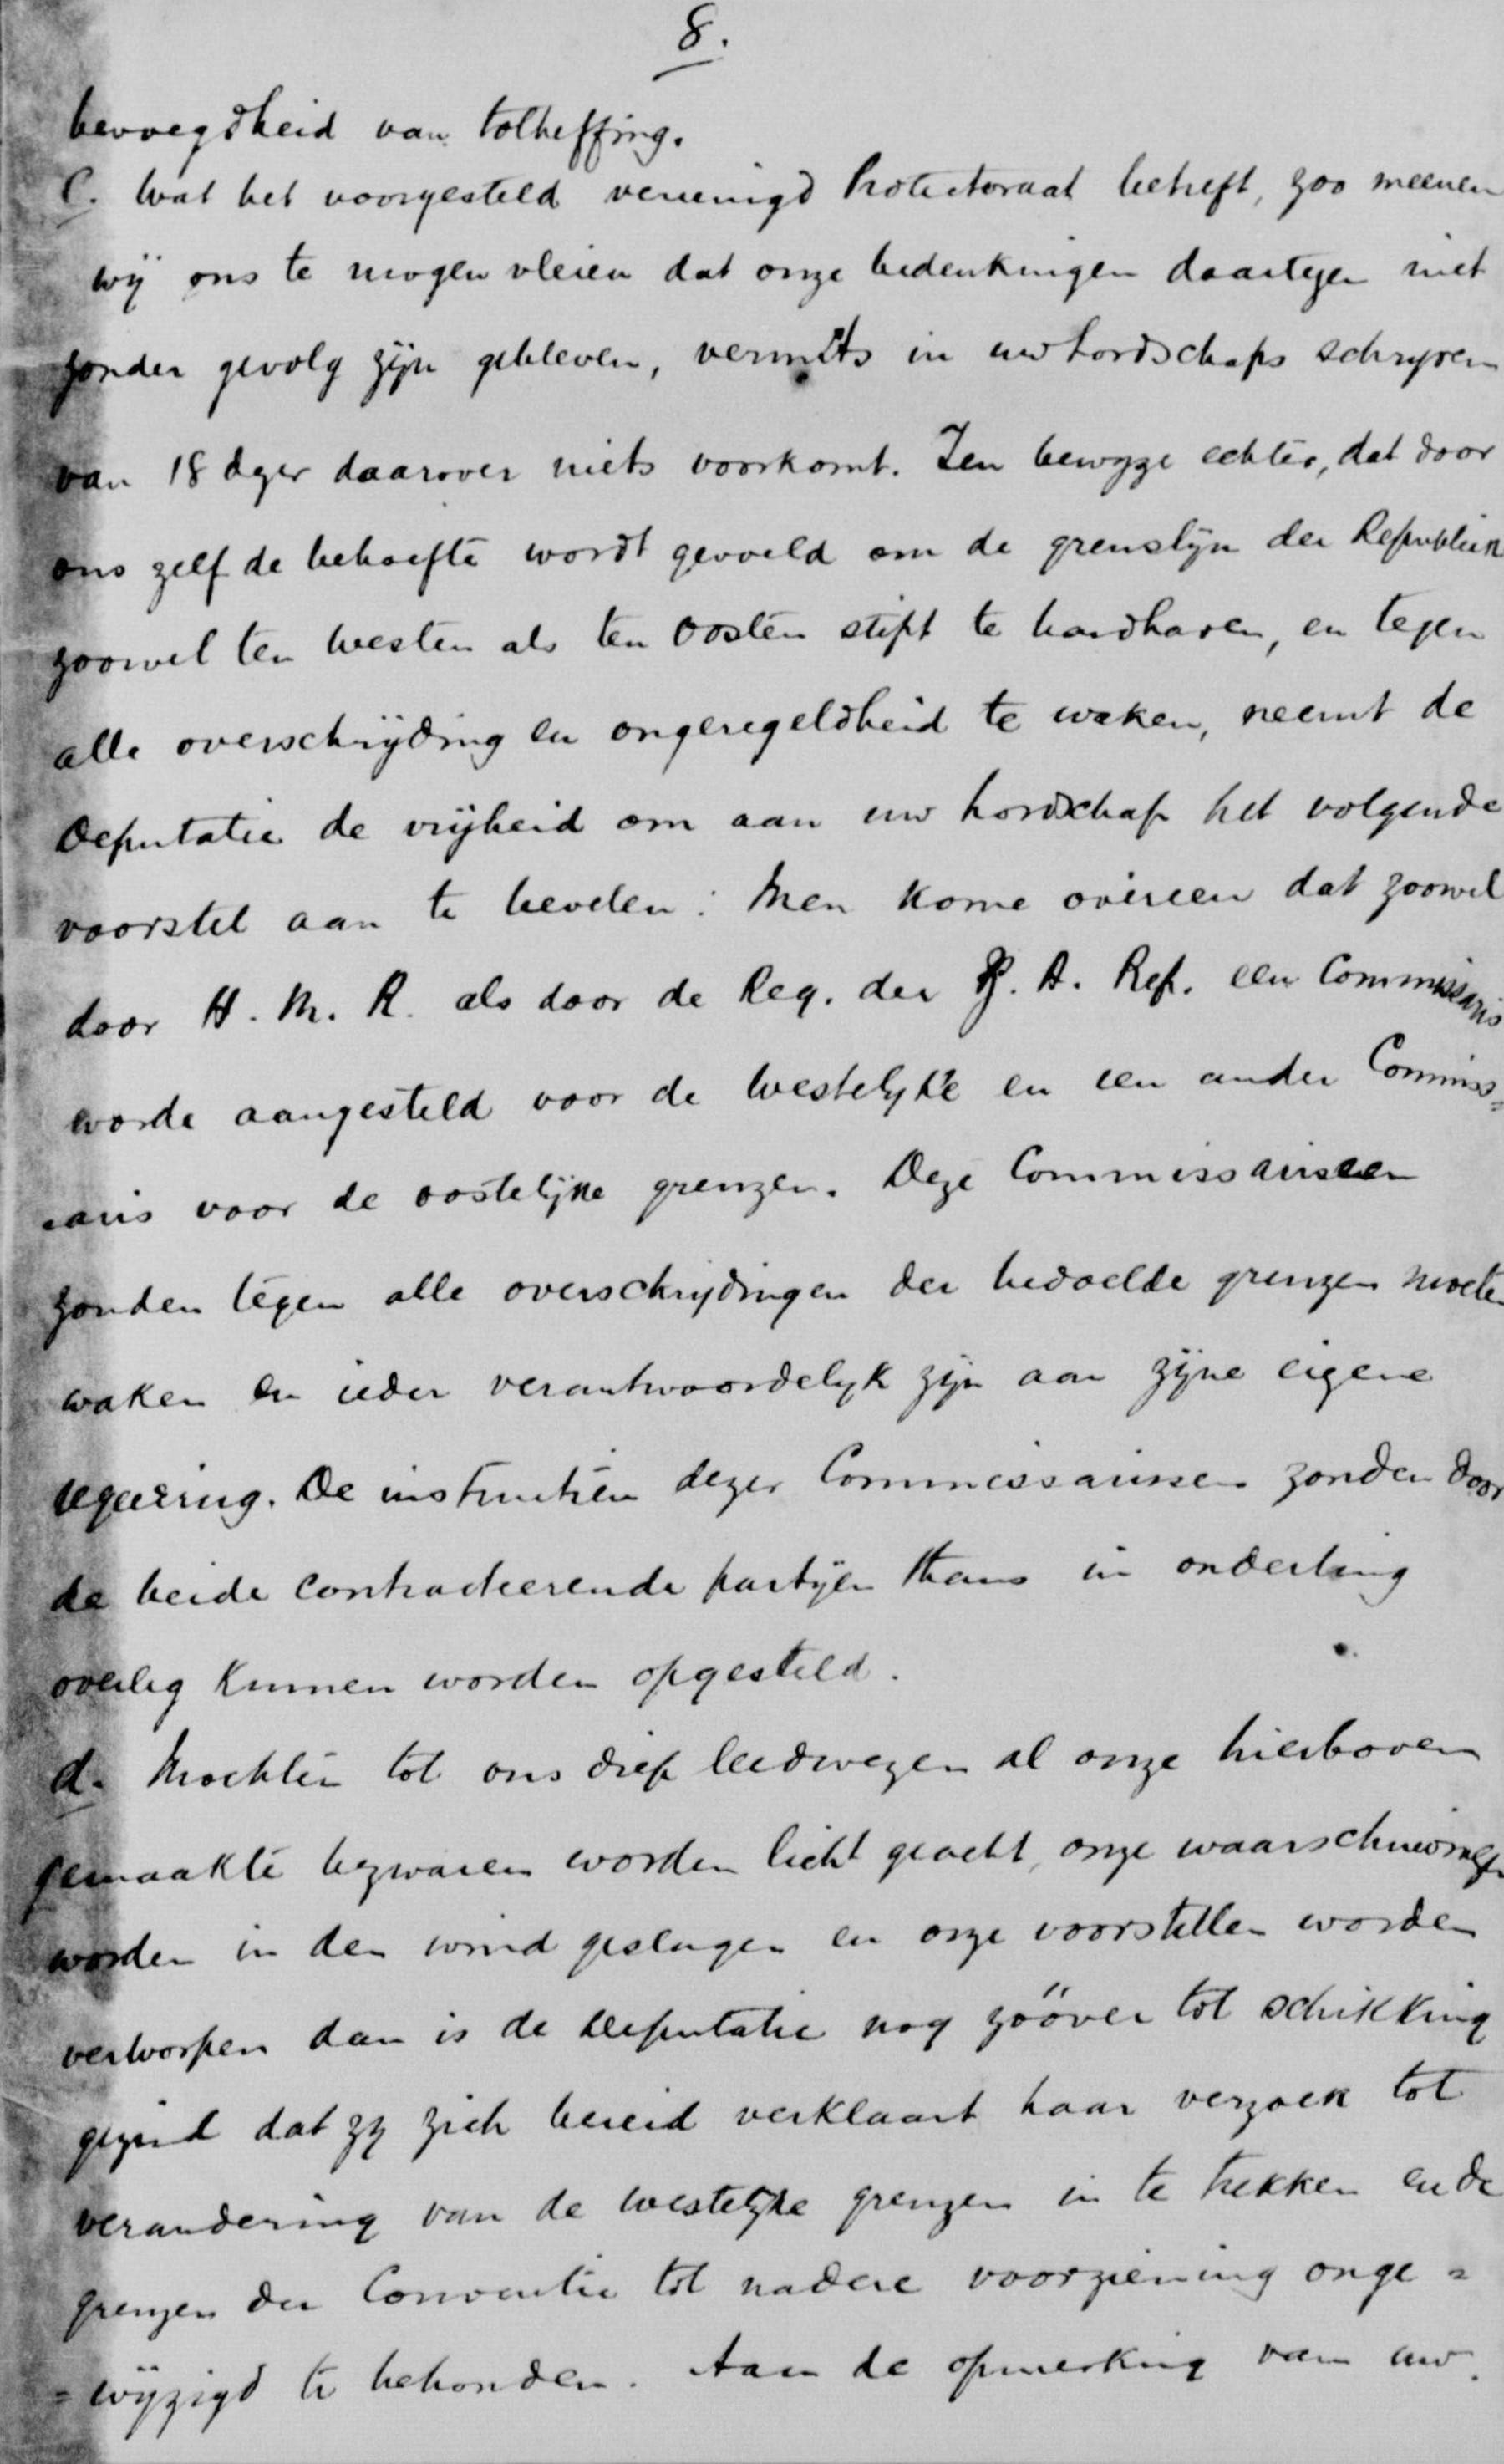 8.
bevoegdheid van tolheffing.
C. Wat het voorgesteld vereenigd Protectoraat betreft, zoo meenen
wij ons te mogen vleien dat onze bedenkingen daartegen niet
zonder gevolg zijn gebleven, vermits in uw Lordschaps schryven
van 18 dezer daarover niets voorkomt. Ten bewyze echter, dat door
ons zelf de behoefte wordt gevoeld om de grenslijn der Republiek
zoowel ten Westen als ten Oosten stipt te handhaven, en tegen
alle overschrijding en ongeregeldheid te waken, neemt de
Deputatie de vrijheid om aan uw Lordschap het volgende
voorstel aan te bevelen: Men kome overeen dat zoowel
door H. M. R. als door de Reg. der Z. A. Rep. een Commissaris
worde aangesteld voor de Westelyke en een ander Commis=
saris voor de oostelijke grenzen. Deze Commissarissen
zouden tegen alle overschrydingen der bedoelde grenzen moeten
waken en ieder verantwoordelyk zijn aan zijne eigene
regeering. De instructien dezer Commissarissen zouden door
de beide contracteerende partijen thans in onderling
overleg kunnen worden opgesteld.
d. Mochten tot ons diep leedwezen al onze hierboven
gemaakte bezwaren worden licht geacht, onze waarschuwingen
worden in den wind geslagen en onze voorstellen worden
verworpen dan is de Deputatie nog zóóver tot schikking
gezind dat zy zich bereid verklaart haar verzoek tot
verandering van de westelijke grenzen in te trekken en de
grenzen der Conventie tot nadere voorziening onge=
=wijzigd te behouden. Aan de opmerking van uw